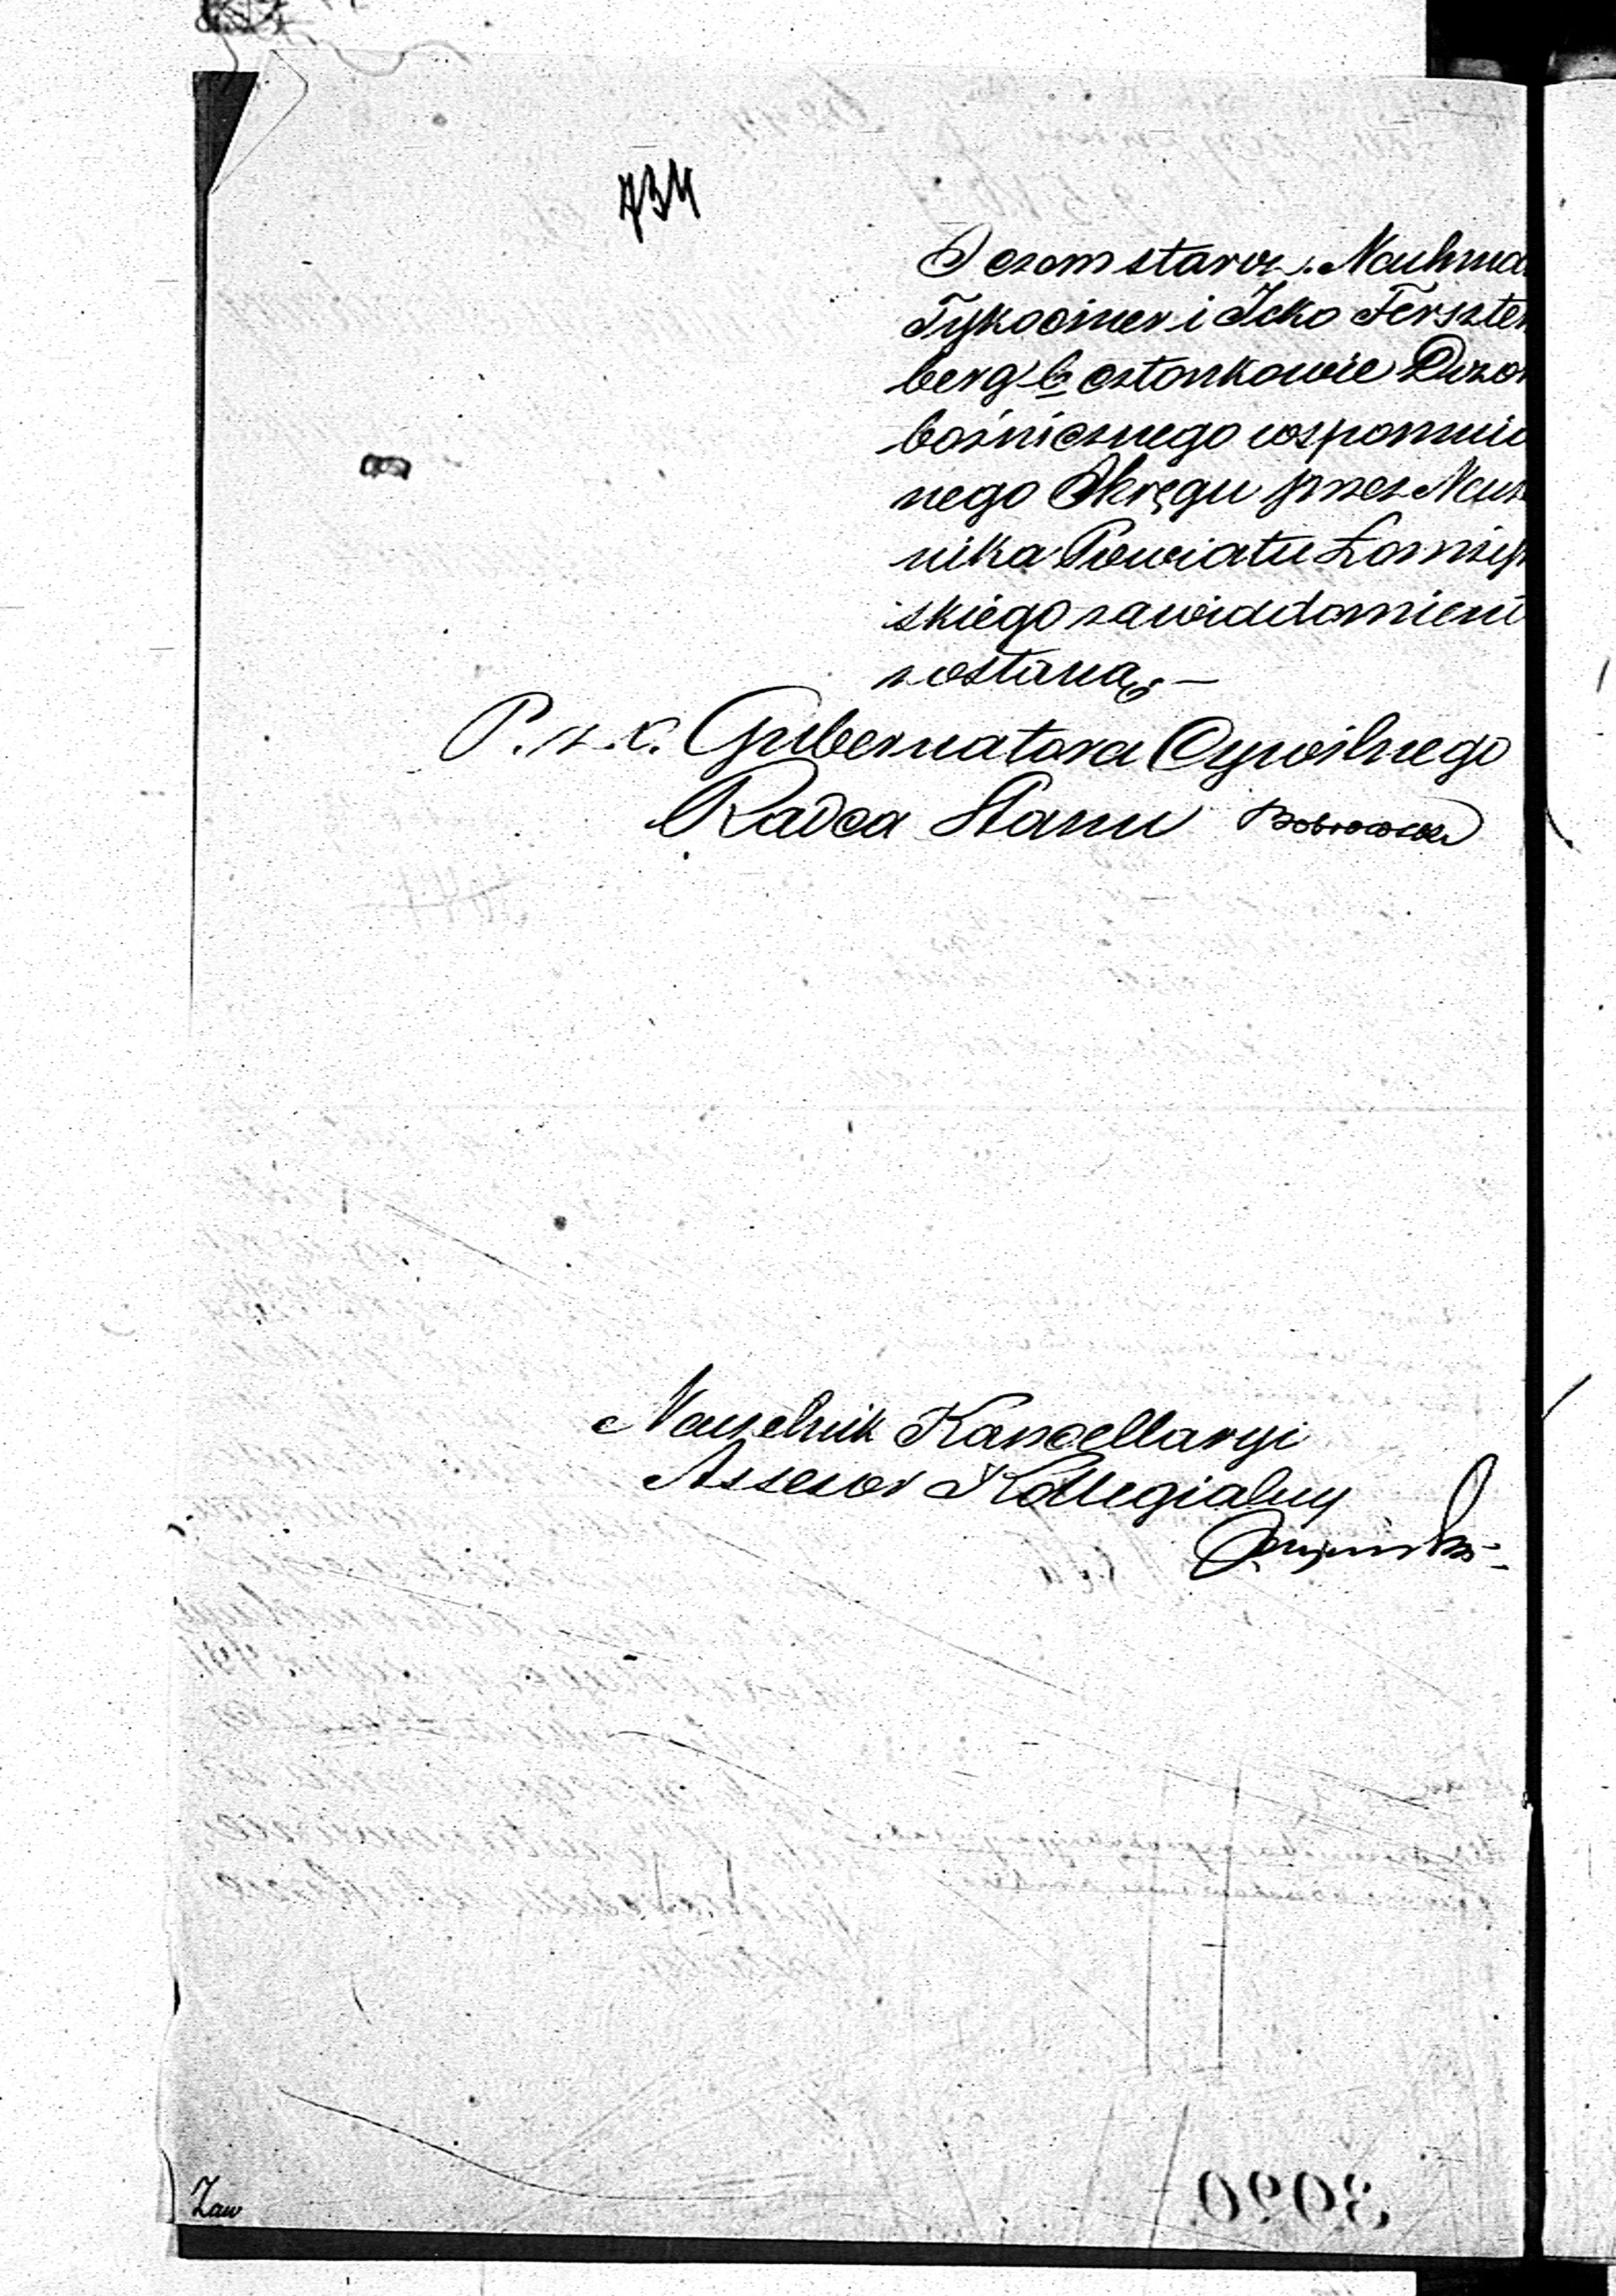 734
O czem staroz. Nauhma
Tykociner i Icko Ferszten
berg b. członkowie Dozo
bożnicznego wspomnia
nego Okręgu przez Nacz
nika Powiatu Łomżyń
skiego zawiadomieni
zostaną.—
P. z. c. Gubernatora Cywilnego
Radca Stanu
Naczelnik Kancellaryi
Assesor Kollegialny
Zaw
3090